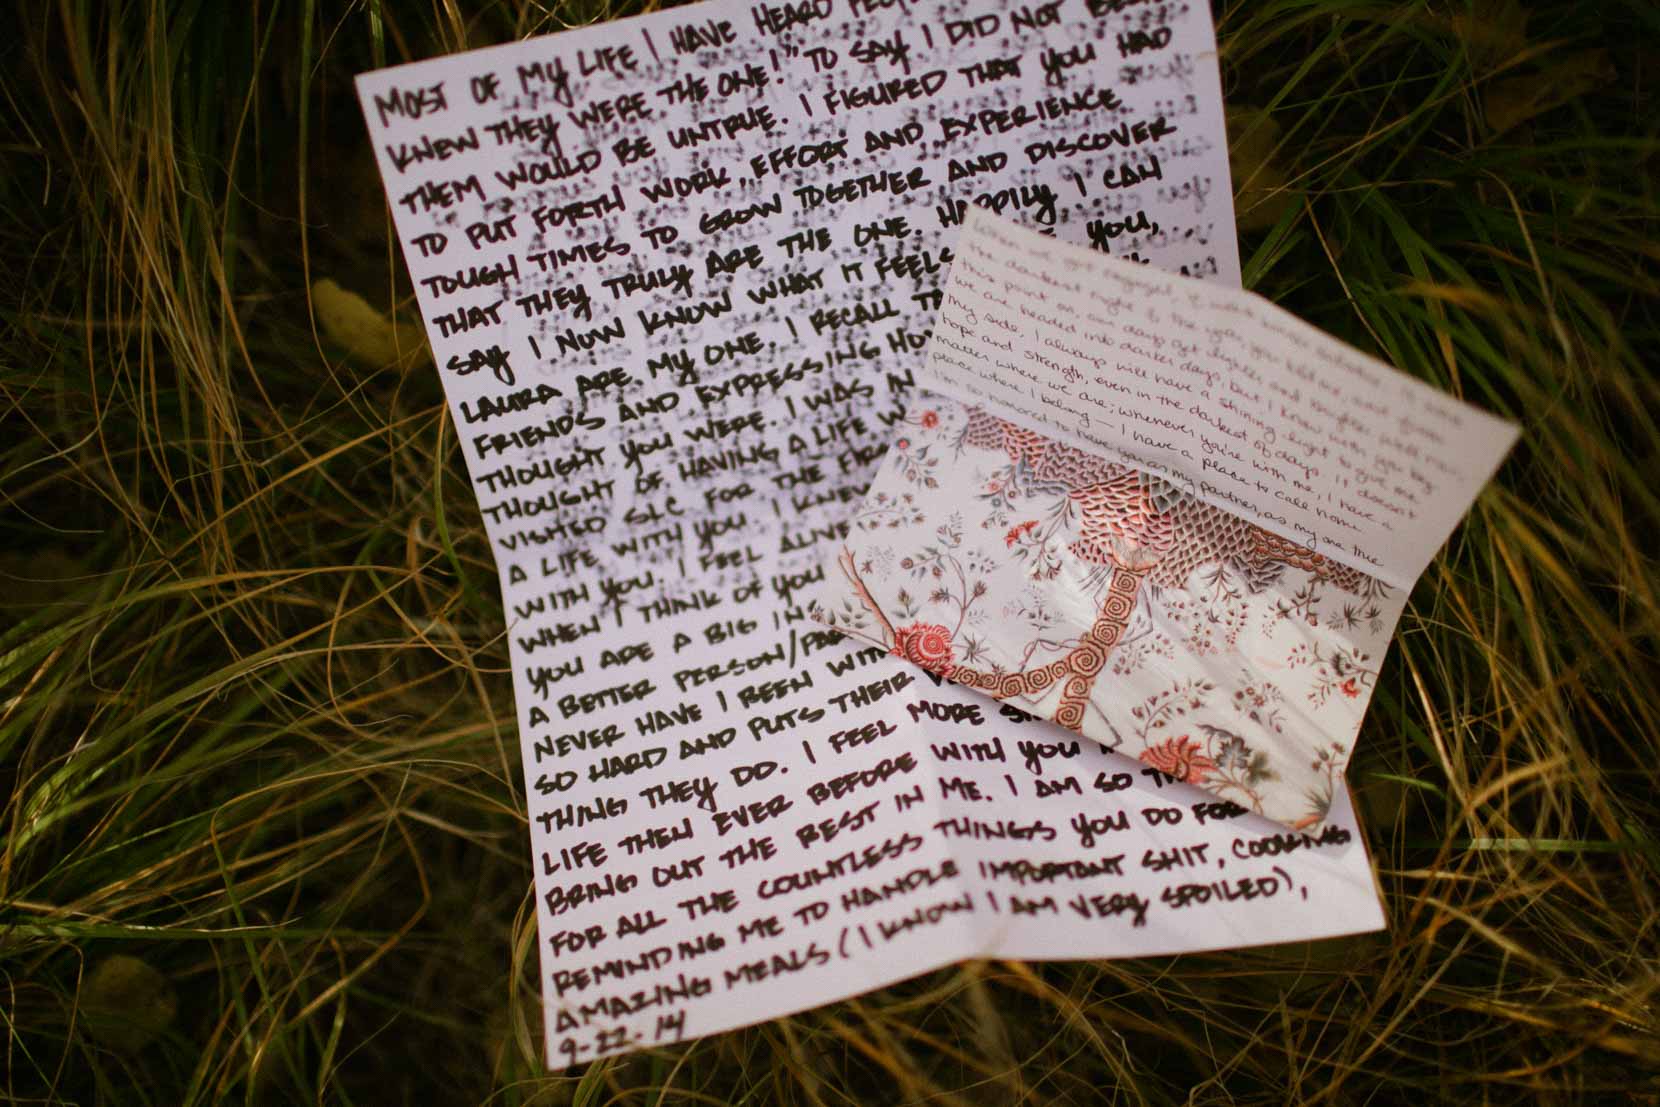 MOST OF MY LIFE I HAVE HEARD
KNEW THEY WERE THE ONE!" TO SAY I DID NOT
THEM WOULD BE UNTRUE. I FIGURED THAT YOU HAD
TO PUT FORTH WORK, EFFORT AND EXPERIENCE
TOUGH TIMES TO GROW TOGETHER AND DISCOVER
THAT THEY TRULY ARE THE ONE. HAPPILY I CAN
SAY I NOW KNOW WHAT IT FEELS YOU,
LAURA ARE MY ONE. I RECALL
FRIENDS AND EXPRESSING
THOUGHT YOU WERE. I WAS IN
THOUGHT OF HAVING A LIFE
VISITED SLC FOR THE
A LIFE WITH YOU. I KNEW
WITH YOU. I FEEL ALIVE
WHEN I THINK OF YOU
YOU ARE A BIG
A BETTER PERSON/
NEVER HAVE I BEEN WITH
SO HARD AND PUTS THEIR
THING THEY DO. I FEEL MORE
LIFE THEN EVER BEFORE WITH YOU
BRING OUT THE BEST IN ME. I AM SO
FOR ALL THE COUNTLESS THINGS YOU DO FOR
REMINDING ME TO HANDLE IMPORTANT SHIT, COOKING
AMAZING MEALS (I KNOW I AM VERY SPOILED),
9-22-14
When we got engaged, it was
the darkest night of the year, you told me, and from
this point on, our days get lighter and brighter. Well now,
we are headed into darker days, but I know with you by
my side, I always will have a shining light to give me
hope and strength, even in the darkest of days. It doesn't
matter where we are; whenever you're with me, I have a
place where I belong — I have a place to call home.
I'm so honored to have you as my partner, as my one true